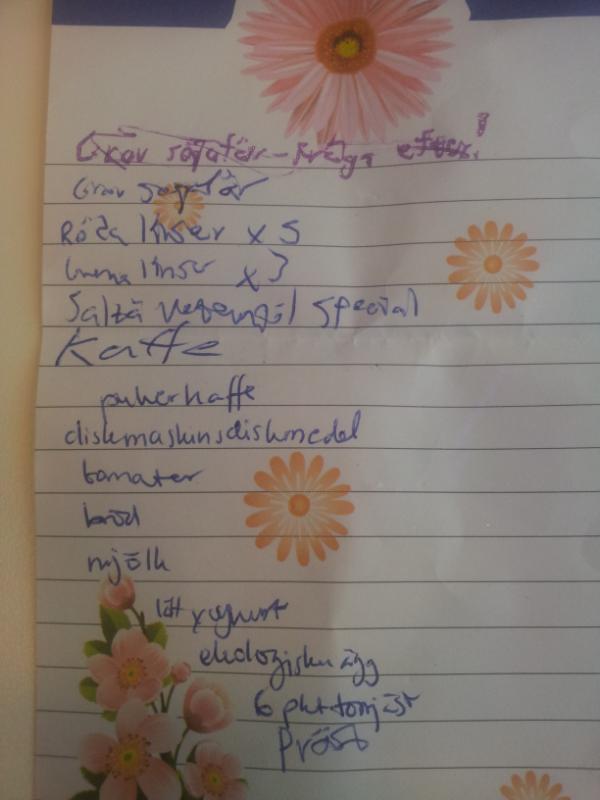 Grov sojafär - Fråga efter!
Grov sojafär
Röda linser x 5
linser x 3
Saltå vetemjöl special
Kaffe
pulverkaffe
diskmaskinsdiskmedel
tomater
bröd
mjölk
lätt yoghurt
ekologiska ägg
6 pkt torrjäst